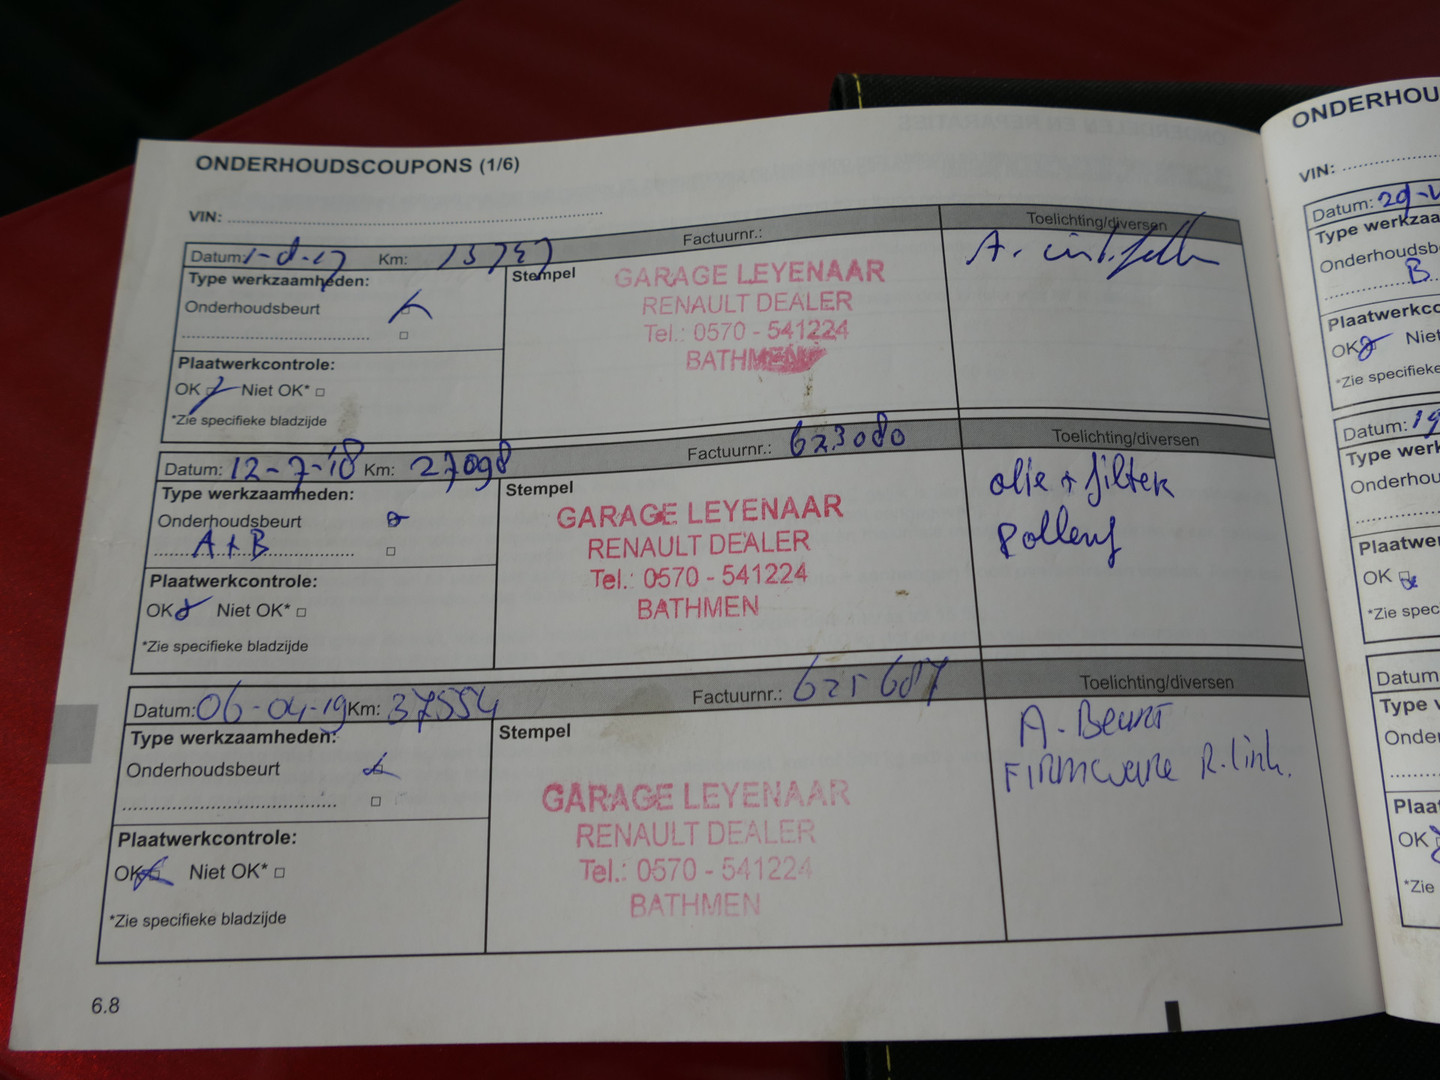 ONDERHOUDSCOUPONS (1/6)
VIN:
Datum: Km: Factuurnr.: Toelichting/diversen
Type werkzaamheden: Stempel
A.
Onderhoudsbeurt
GARAGE LEYENAAR
RENAULT DEALER
Tel.: 0570 - 541224
BATHMEN
Plaatwerkcontrole:
OK Niet OK*
*Zie specifieke bladzijde
Datum: 12-7-18 Km: 27098 Factuurnr.: 623080 Toelichting/diversen
Type werkzaamheden: Stempel
Onderhoudsbeurt
A+B
GARAGE LEYENAAR
RENAULT DEALER
Tel.: 0570 - 541224
BATHMEN
olie + filter
Pollenf
Plaatwerkcontrole:
OK Niet OK*
*Zie specifieke bladzijde
Datum: 06-04-19 Km: 37554 Factuurnr.: 625687 Toelichting/diversen
Type werkzaamheden: Stempel
Onderhoudsbeurt
GARAGE LEYENAAR
RENAULT DEALER
Tel.: 0570 - 541224
BATHMEN
A-Beurt
Firmware R.link.
Plaatwerkcontrole:
OK Niet OK*
*Zie specifieke bladzijde
6.8
ONDERHOU
VIN:
Datum: 29-
Type werkzaa
Onderhoudsb
B
Plaatwerkco
OK Niet
*Zie specifieke
Datum: 19
Type werk
Onderhou
Plaatwe
OK
*Zie spec
Datum
Type
Onder
Plaa
OK
*Zie